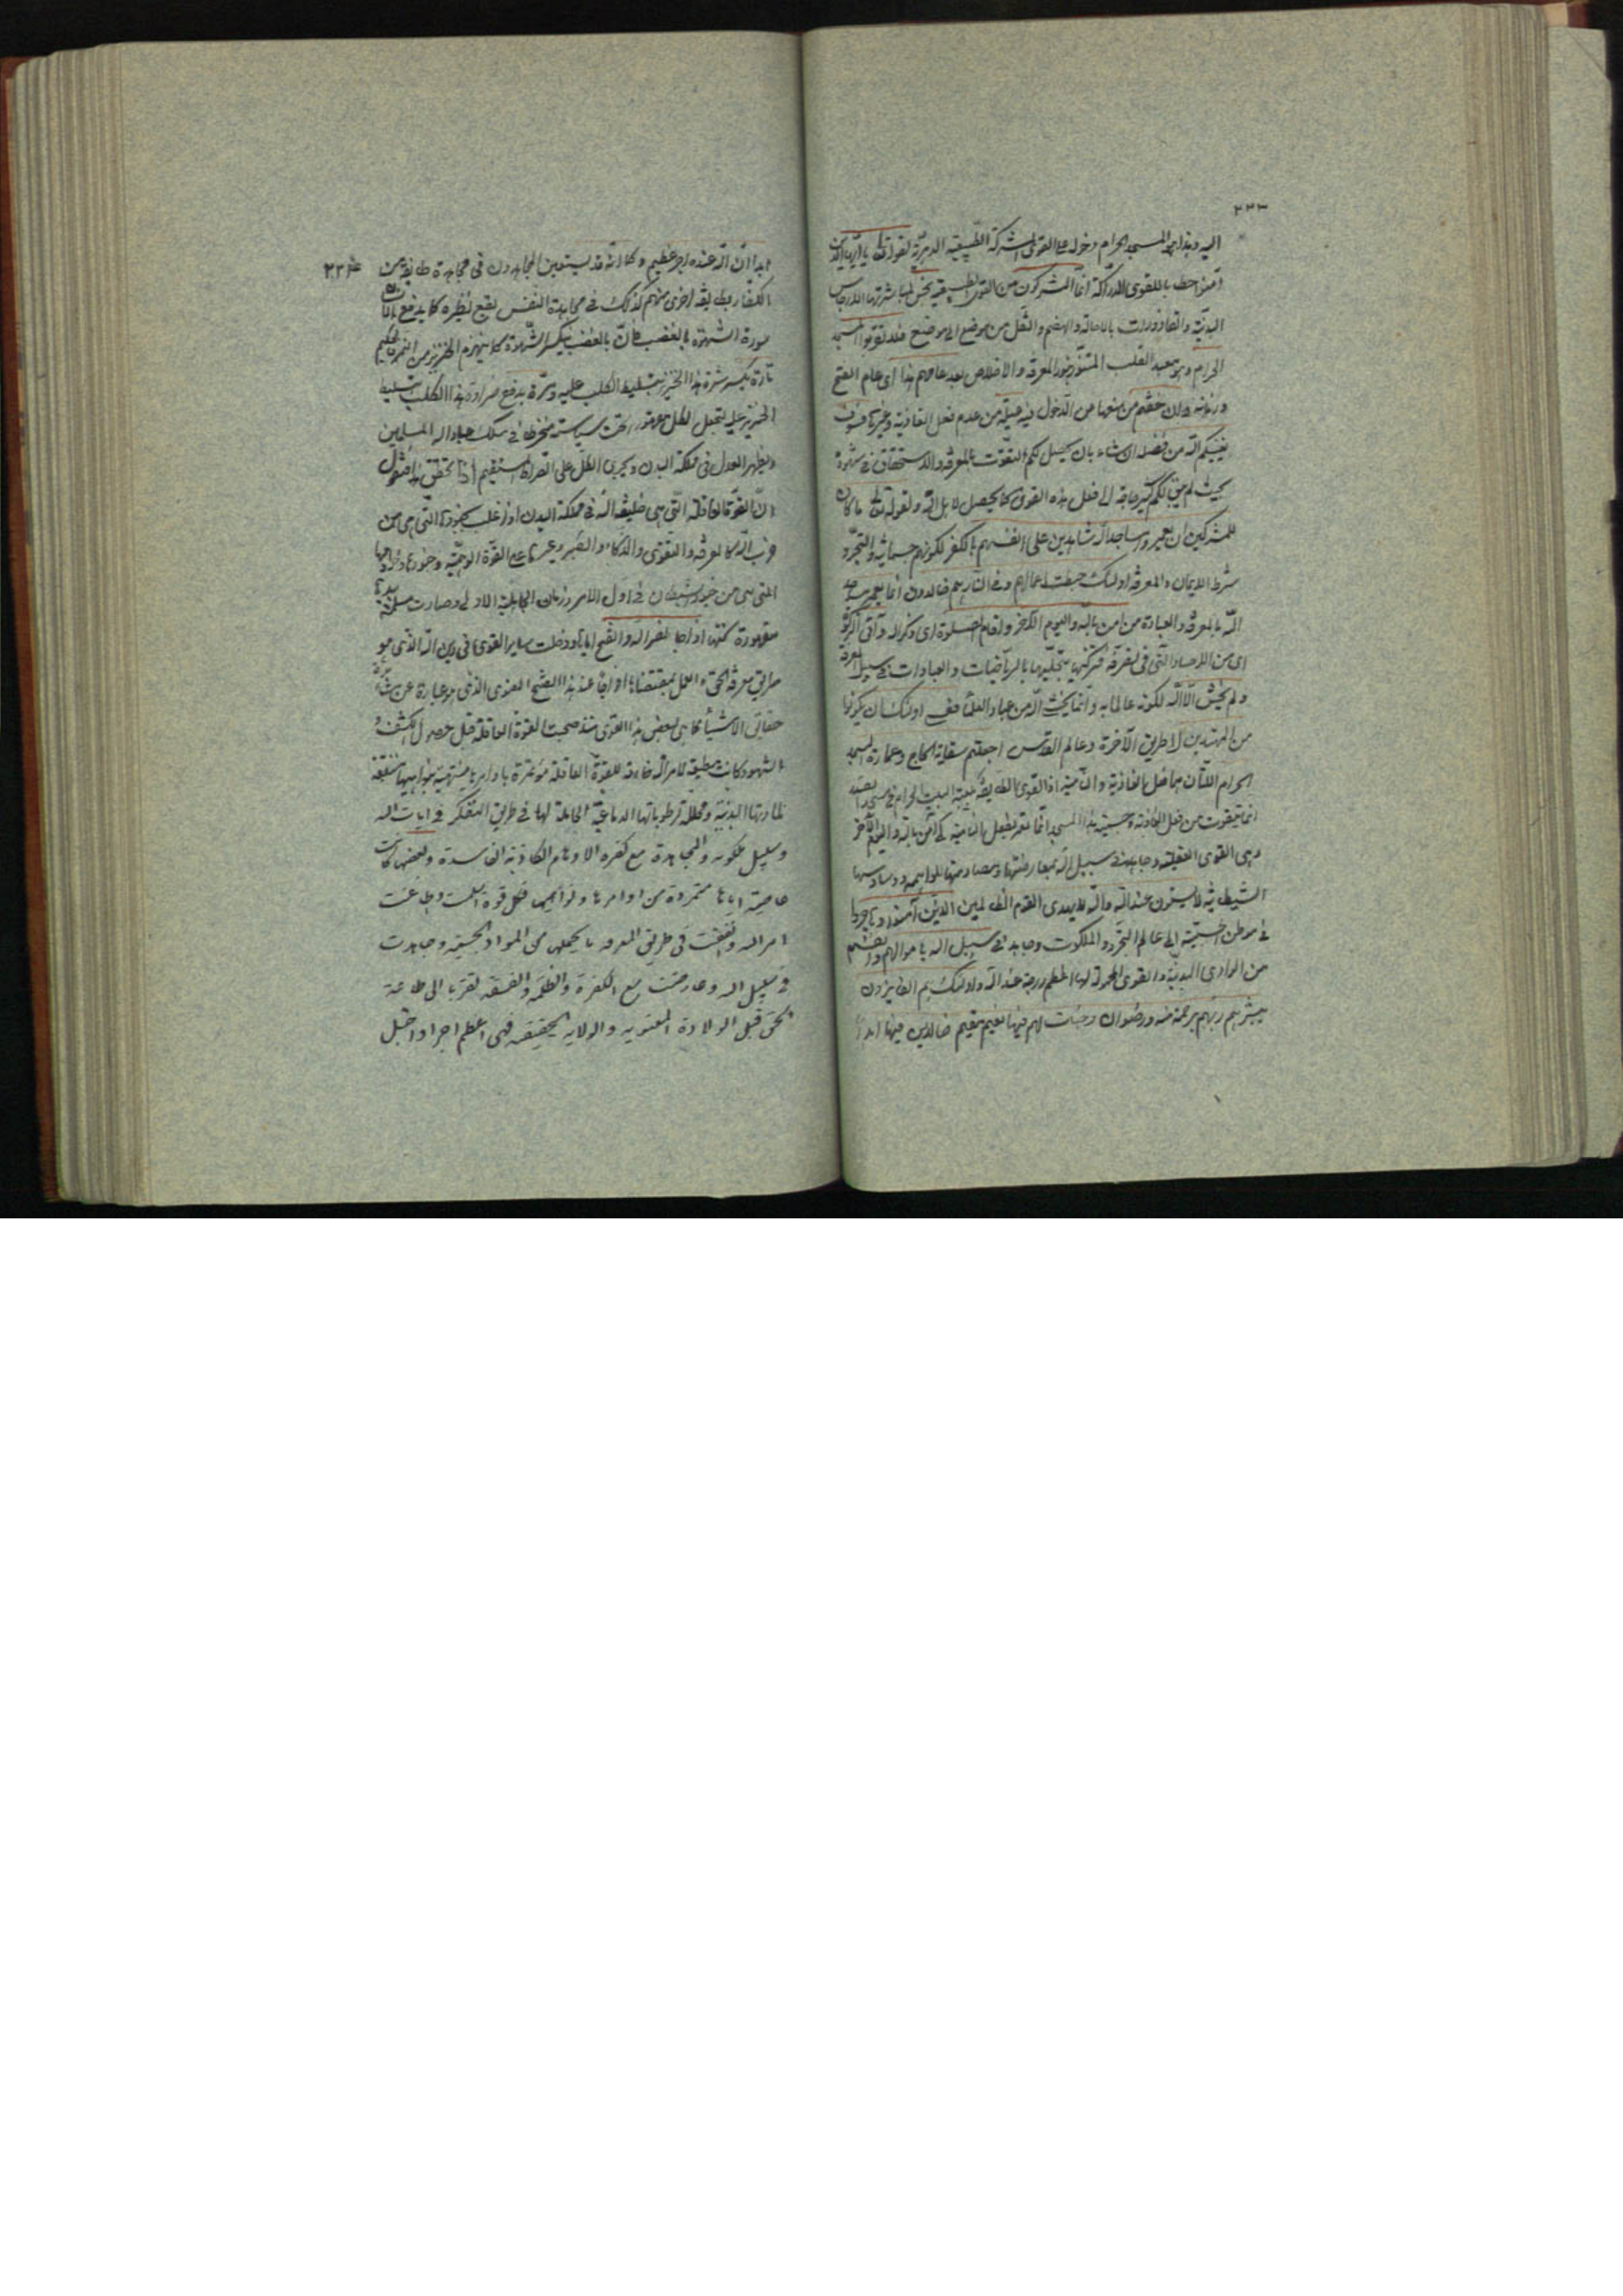 ٢٣٣
اليه وبذا هو المسجد الحرام دخوله على القوى المشركة الطبيعية البدنية لقوله تعالى يا ايها الذين
آمنوا خطابا للقوى الدراكة انما المشركون من القوى الطبيعية نجس لمباشرتها الارجاس
البدنية والقاذورات بالاحالة والهضم والنقل من موضع الى موضع فلا تقربوا المسجد
الحرام وهو معبد القلب المتنور بنور المعرفة والاخلاص بعد عامهم هذا اى عام الفتح
وزمانه وان خفتم من منعها من الدخول فيه عيلة من عدم فعل الغاذية وغيرها فسوف
يغنيكم الله من فضله ان شاء بان يحصل لكم التقوت بالمعرفة والاستحقاق
بحيث لم يبق لكم حاجة الى فعل هذه القوى كما يحصل لاهل الله ولقوله تعالى ما كان
للمشركين ان يعمروا مساجد الله شاهدين على انفسهم بالكفر لكونهم جسمانية والتجرد
شرط الايمان والمعرفة اولئك حبطت اعمالهم وفى النار هم خالدون انما يعمر مساجد
الله بالمعرفة والعبادة من آمن بالله واليوم الآخر واقام الصلوة اى ذكر الله وآتى الزكوة
اى من الاجساد التى فى تصرفه فتزكيتها بتحليلها بالرياضات والعبادات فى سبيل المعرفة
ولم يخش الا الله لكونه عالما به وانما يخشى الله من عباده العلماء فعسى اولئك ان يكونوا
من المهتدين لطريق الآخرة وعالم القدس اجعلتم سقاية الحاج وعمارة المسجد
الحرام اللتان هما فعل الغاذية والنامية اذ القوى الطائفة بكعبة البيت الحرام
انما تتقوت من فعل الغاذية وجسمية هذا المسجد انما تعمر بفعل النامية كمن آمن بالله واليوم الآخر
وهى القوى العقلية وجاهد فى سبيل الله بمعارضتها ومصادمتها للواهمة ووساوسها
الشيطانية لا يستوون عند الله والله لا يهدى القوم الظالمين الذين آمنوا وهاجروا
فى موطن الحسية الى عالم التجرد والملكوت وجاهدوا فى سبيل الله باموالهم وانفسهم
من المواد البدنية والقوى المحمولة لها اعظم درجة عند الله واولئك هم الفائزون
يبشرهم ربهم برحمة منه ورضوان وجنات لهم فيها نعيم مقيم خالدين فيها ابدا
ابدا ان الله عنده اجر عظيم وكما انه قد يستعين المجاهدون فى مجاهدة طائفة من
الكفار بطائفة اخرى منهم كذلك فى مجاهدة النفس يقع نظيره كما يدفع الانسان
سورة الشهوة بالغضب فان بالغضب يكسر الشهوة كما ينهزم الخنزير من النمر فالحكيم
تارة يكسر شره هذا الخنزير بتسليط الكلب عليه ومرة يدفع ضراوة هذا الكلب بتسليط
الخنزير عليه ليجعل الكل مقهورا تحت سياسته منخرطا فى سلك عباد الله المسلمين
ويظهر العدل فى مملكة البدن ويجرى الكل على الصراط المستقيم اذا تحقق هذا فنقول
ان القوة العاقلة التى هى خليفة الله فى مملكة البدن اذا غلبت بجنودها التى هى من
حزب الله كالمعرفة والتقوى والذكاء والصبر وغيرها على القوة الوهمية وجنودها
التى هى من جنود الشيطان فى اول الامر وزمان الجاهلية الاولى وصارت
مقهورة تحتها اذا جاء نصر الله والفتح اياها ودخلت ساير القوى فى دين الله الذى هو
طريق معرفة الحق والعمل بمقتضاها افواجا عند هذا الفتح المعنوى الذى هو عبارة عن مشاهدة
حقائق الاشياء كما هى فبعض هذه القوى منذ صحبت القوة العاقلة قبل حصول الكشف و
الشهود كانت مطيعة لامر الله خادمة للقوة العاقلة مؤتمرة باوامرها منتهية بنواهيها منفقة
لمادتها البدنية ومحللة لرطوباتها الدماغية الحاملة لها فى طريق التفكر فى آيات الله
وسبيل ملكوته والمجاهدة مع كفرة الاوهام الكاذبة الفاسدة وبعضها كانت
عاصية اياها متمردة من اوامرها ونواهيها فكل قوة اسلمت واطاعت
امر الله وانفقت فى طريق المعرفة ما يحملها من المواد الجسمية وجاهدت
فى سبيل الله وعارضت مع الكفرة والظلمة والفسقة تقربا الى طاعة
الحق قبل الولادة المعنوية والولاية الحقيقية فهى اعظم اجرا واجل